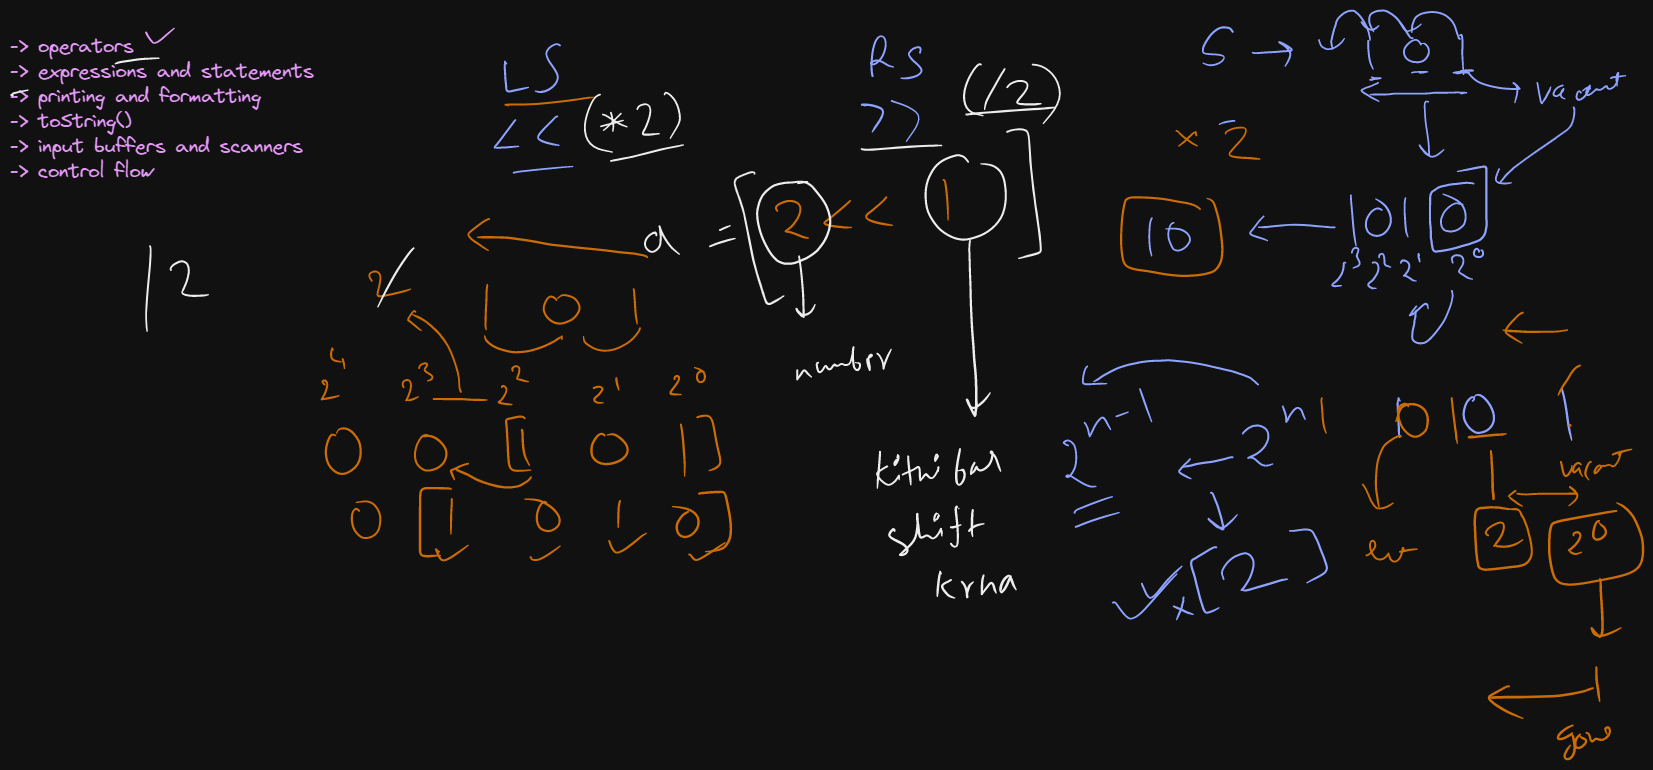 -> operators
-> expressions and statements
-> printing and formatting
-> toString()
-> input buffers and scanners
-> control flow
LS
<< (*2)
RS
>> (/2)
a = [2 << 1]
number
kitni bar
shift
krna
12
2
1 0 1
2^4 2^3 2^2 2^1 2^0
0 0 [1 0 1]
0 [1 0 1 0]
5 → 1 0 1
vacant
× 2
10 ← 1010
2^3 2^2 2^1 2^0
2^n-1 ← 2^n
× [2]
1 0 1 0 1
vacant
2 2^0
1